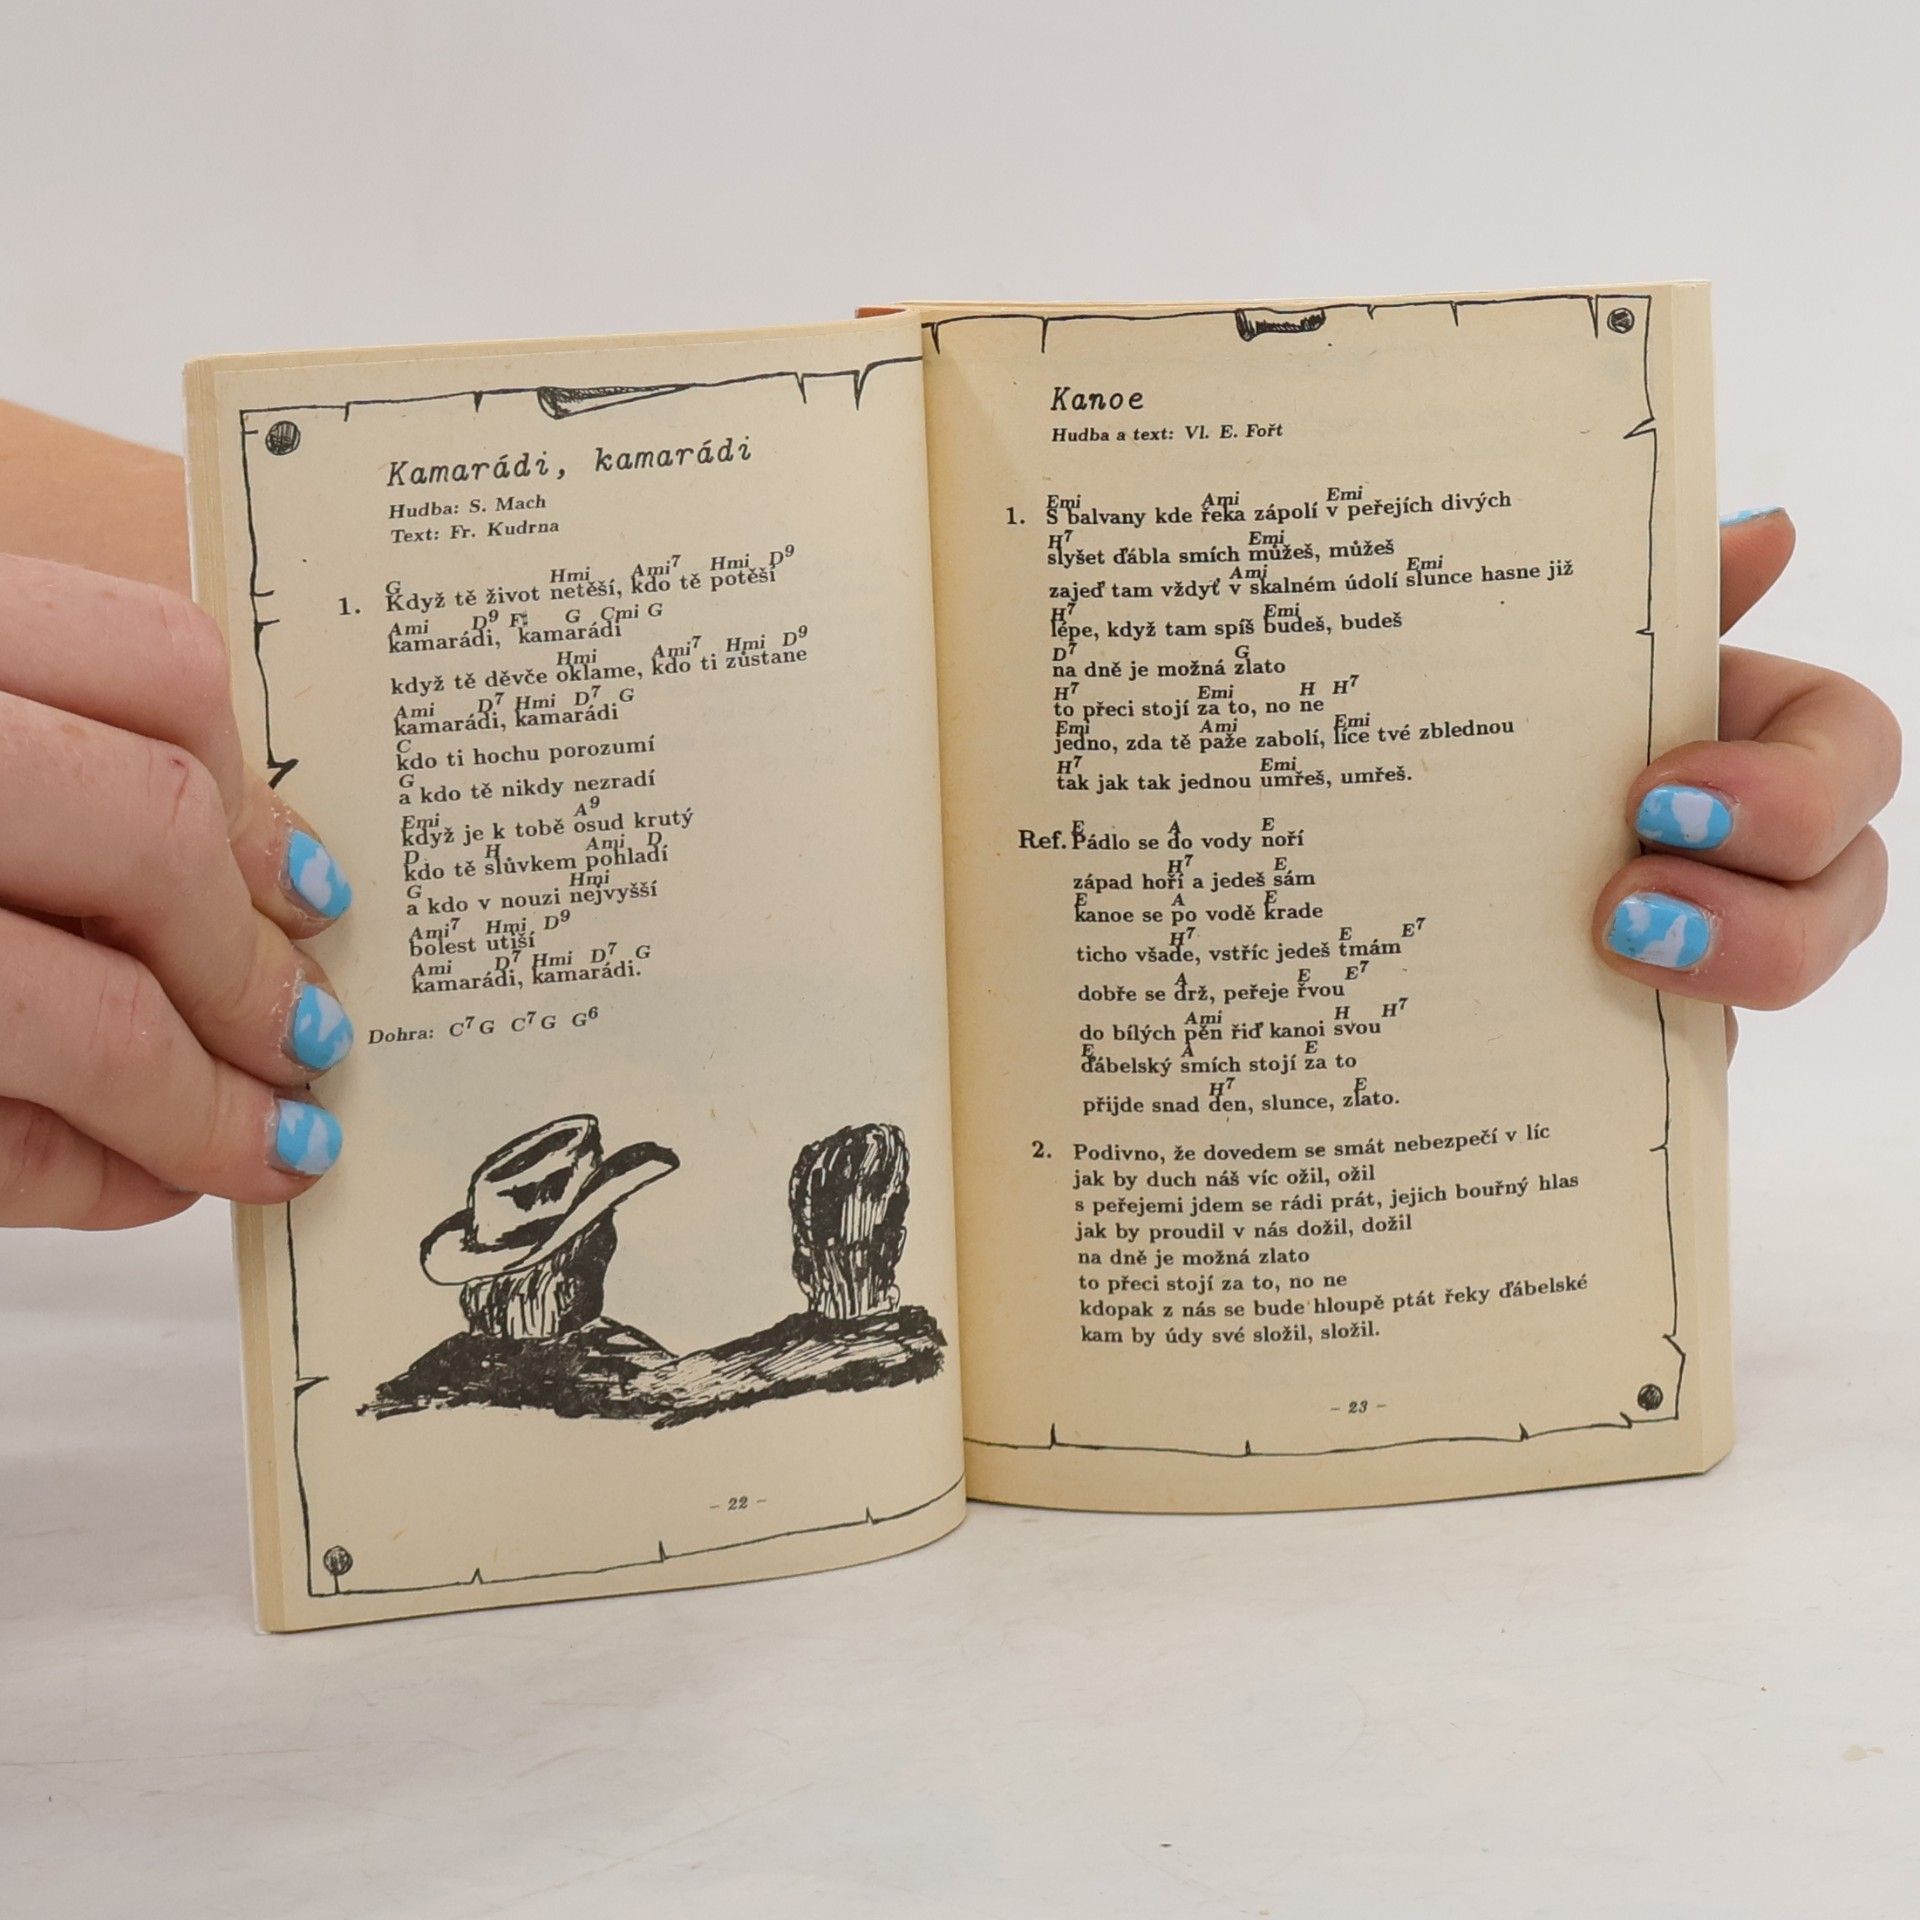 Kamarádi, kamarádi
Hudba: S. Mach
Text: Fr. Kudrna
G Hmi Ami7 Hmi D9
1. Když tě život netěší, kdo tě potěší
Ami D9 F# G Cmi G
kamarádi, kamarádi
Hmi Ami7 Hmi D9
když tě děvče oklame, kdo ti zůstane
Ami D7 Hmi D7 G
kamarádi, kamarádi
C
kdo ti hochu porozumí
G
a kdo tě nikdy nezradí
Emi A9
když je k tobě osud krutý
D H Ami D
kdo tě slůvkem pohladí
G Hmi
a kdo v nouzi nejvyšší
Ami7 Hmi D9
bolest utiší
Ami D7 Hmi D7 G
kamarádi, kamarádi.
Dohra: C7 G C7 G G6
– 22 –
Kanoe
Hudba a text: Vl. E. Fořt
Emi Ami Emi
1. S balvany kde řeka zápolí v peřejích divých
H7 Emi
slyšet ďábla smích můžeš, můžeš
Ami Emi
zajeď tam vždyť v skalném údolí slunce hasne již
H7 Emi
lépe, když tam spíš budeš, budeš
D7 G
na dně je možná zlato
H7 Emi H H7
to přeci stojí za to, no ne
Emi Ami Emi
jedno, zda tě paže zabolí, líce tvé zblednou
H7 Emi
tak jak tak jednou umřeš, umřeš.
E A E
Ref. Pádlo se do vody noří
H7 E
západ hoří a jedeš sám
E A E
kanoe se po vodě krade
H7 E E7
ticho všade, vstříc jedeš tmám
A E E7
dobře se drž, peřeje řvou
Ami H H7
do bílých pěn řiď kanoi svou
E A E
ďábelský smích stojí za to
H7 E
přijde snad den, slunce, zlato.
2. Podivno, že dovedem se smát nebezpečí v líc
jak by duch náš víc ožil, ožil
s peřejemi jdem se rádi prát, jejich bouřný hlas
jak by proudil v nás dožil, dožil
na dně je možná zlato
to přeci stojí za to, no ne
kdopak z nás se bude hloupě ptát řeky ďábelské
kam by údy své složil, složil.
– 23 –